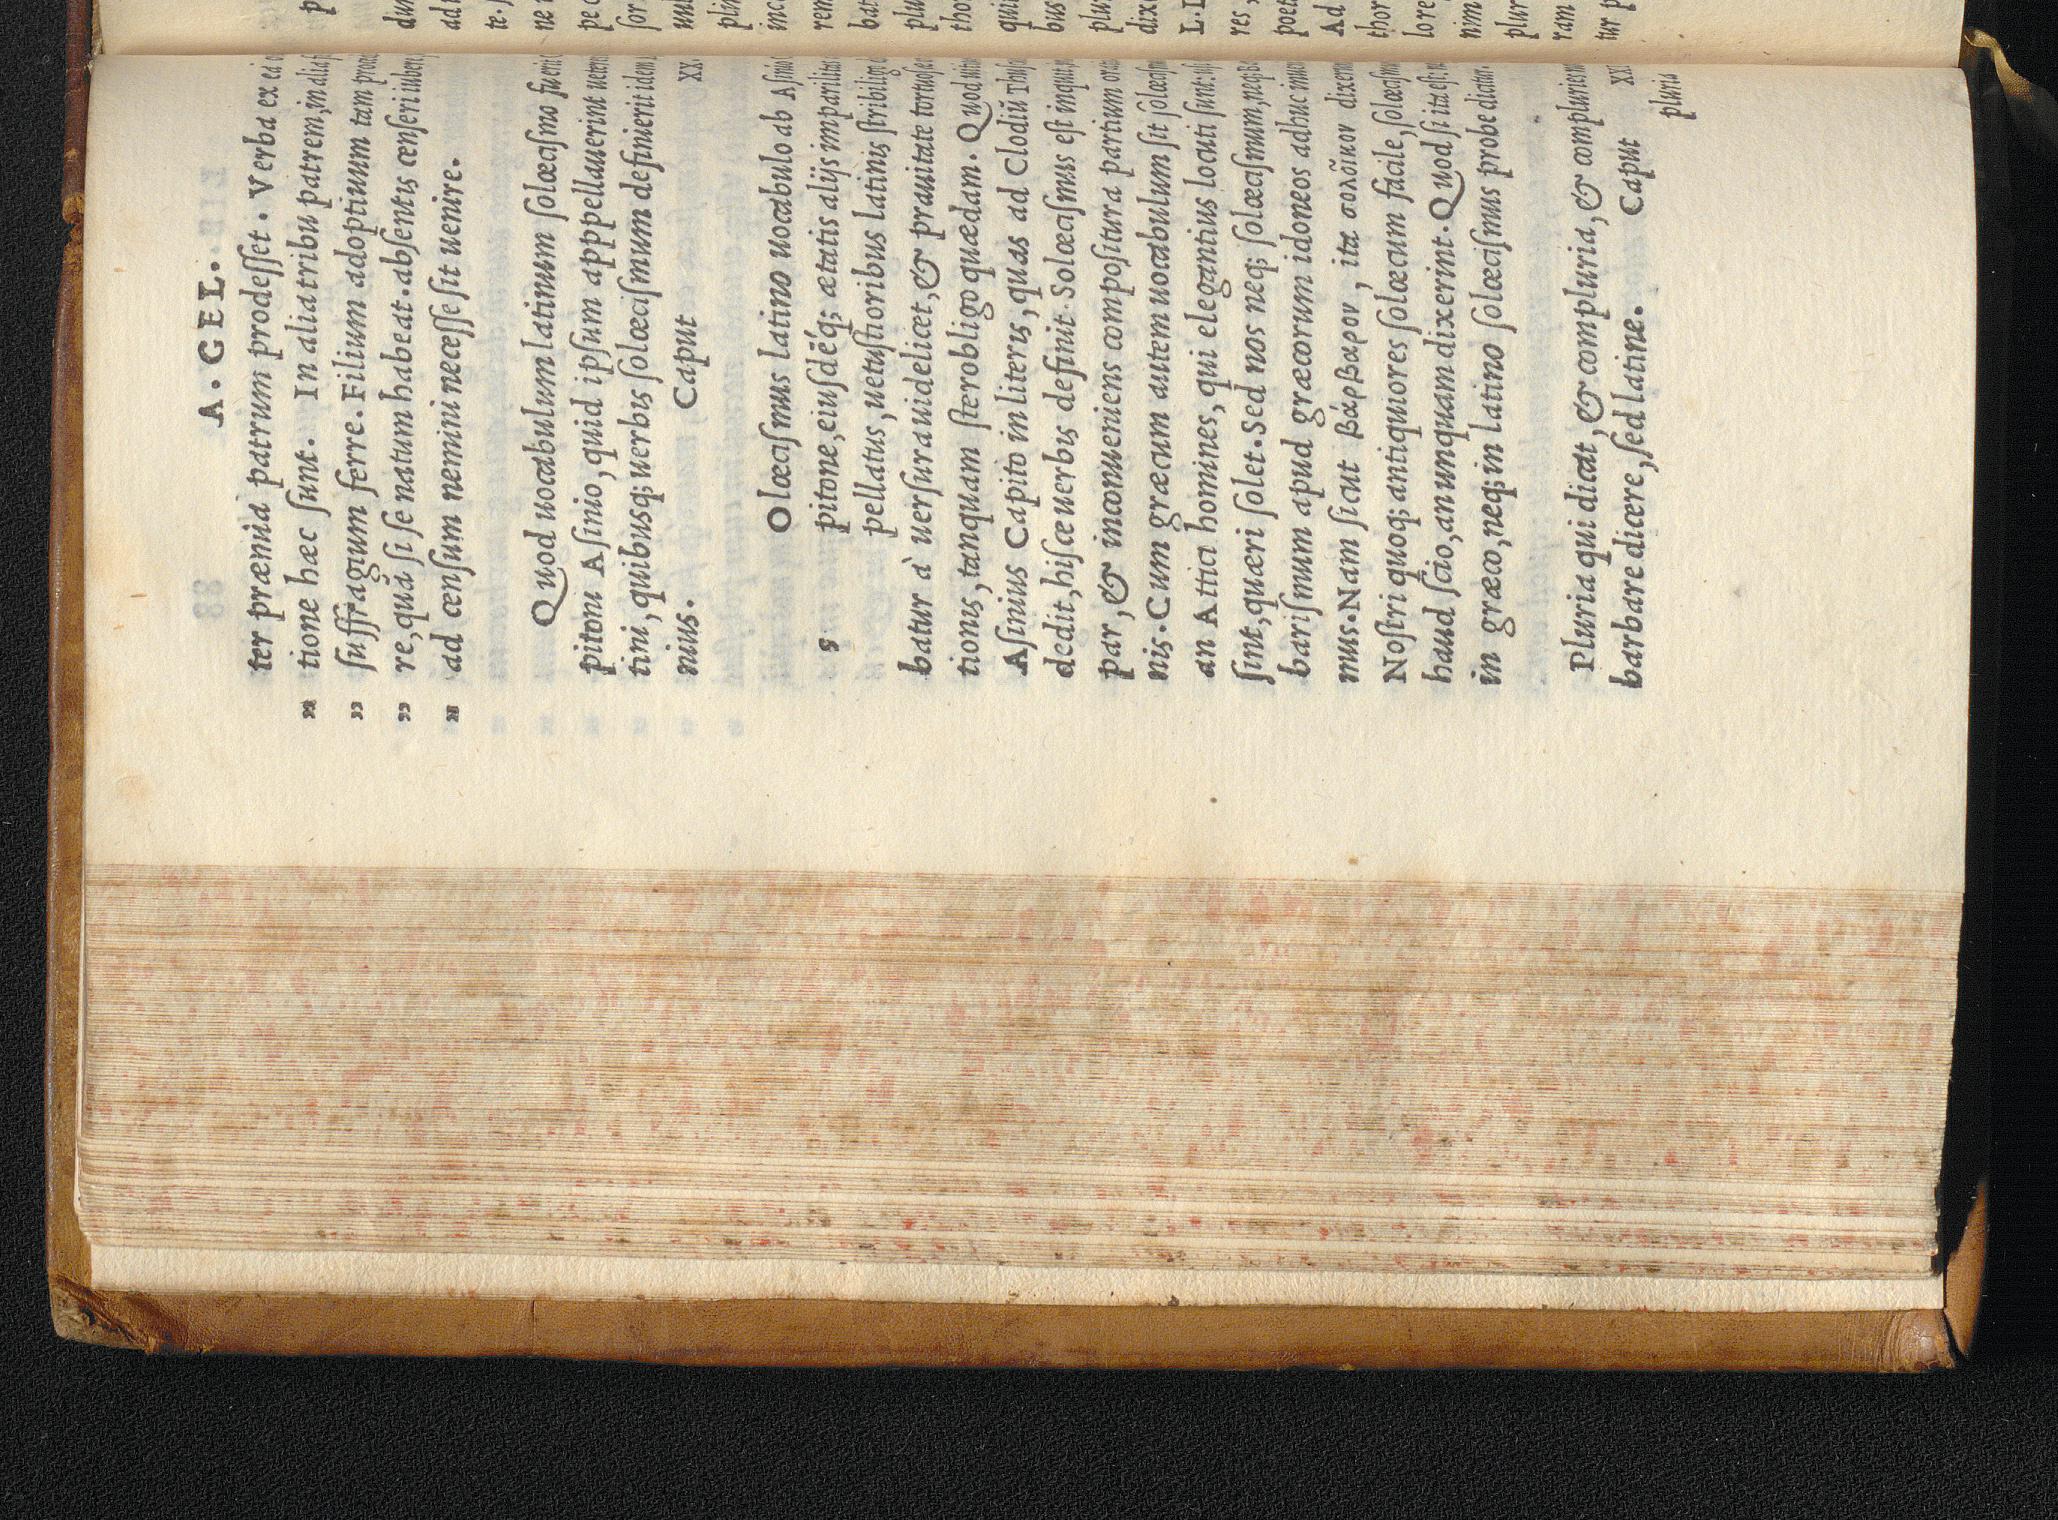 A. GEL.
ter præmia patrum prodeſſet. Verba ex ea
„ tione hæc ſunt. In alia tribu patrem, in alia
„ ſuffragium ferre. Filium adoptiuum tam
„ re, quā ſi ſe natum habeat. abſentis cenſeri
„ ad cenſum nemini neceſſe ſit uenire.
Quod uocabulum latinum ſolœciſmo fuerit
pitoni Aſinio, quid ipſum apppellauerint
tini, quibusq; uerbis ſolœciſmum definierit idem
nius. Caput XX
Olœciſmus latino uocabulo ab Aſinio
s pitone, eiuſdēq; ætatis alijs imparilitas
pellatus, uetuſtioribus latinis ſtribiligo
batur à uerſura uidelicet, & prauitate tortuoſæ
tionis, tanquam ſterobligo quædam. Quod
Aſinius Capito in literis, quas ad Clodiū
dedit, hiſce uerbis definit. Solœciſmus eſt inquit
par, & inconueniens compoſitura partium
nis. Cum græcum autem uocabulum ſit
an Attici homines, qui elegantius locuti ſunt
ſint, quæri ſolet. Sed nos neq; ſolœciſmum, neq;
bariſmum apud græcorum idoneos adhuc
mus. Nam ſicut βάρβαρον, ita σολοῖκον dixerunt
Noſtri quoq; antiquiores ſolœcum facile,
haud ſcio, an unquam dixerint. Quod ſi ita eſt,
in græco, neq; in latino ſolœciſmus probe dicitur.
Pluria qui dicat, & compluria, & compluriens
barbare dicere, ſed latine. Caput XX
pluria